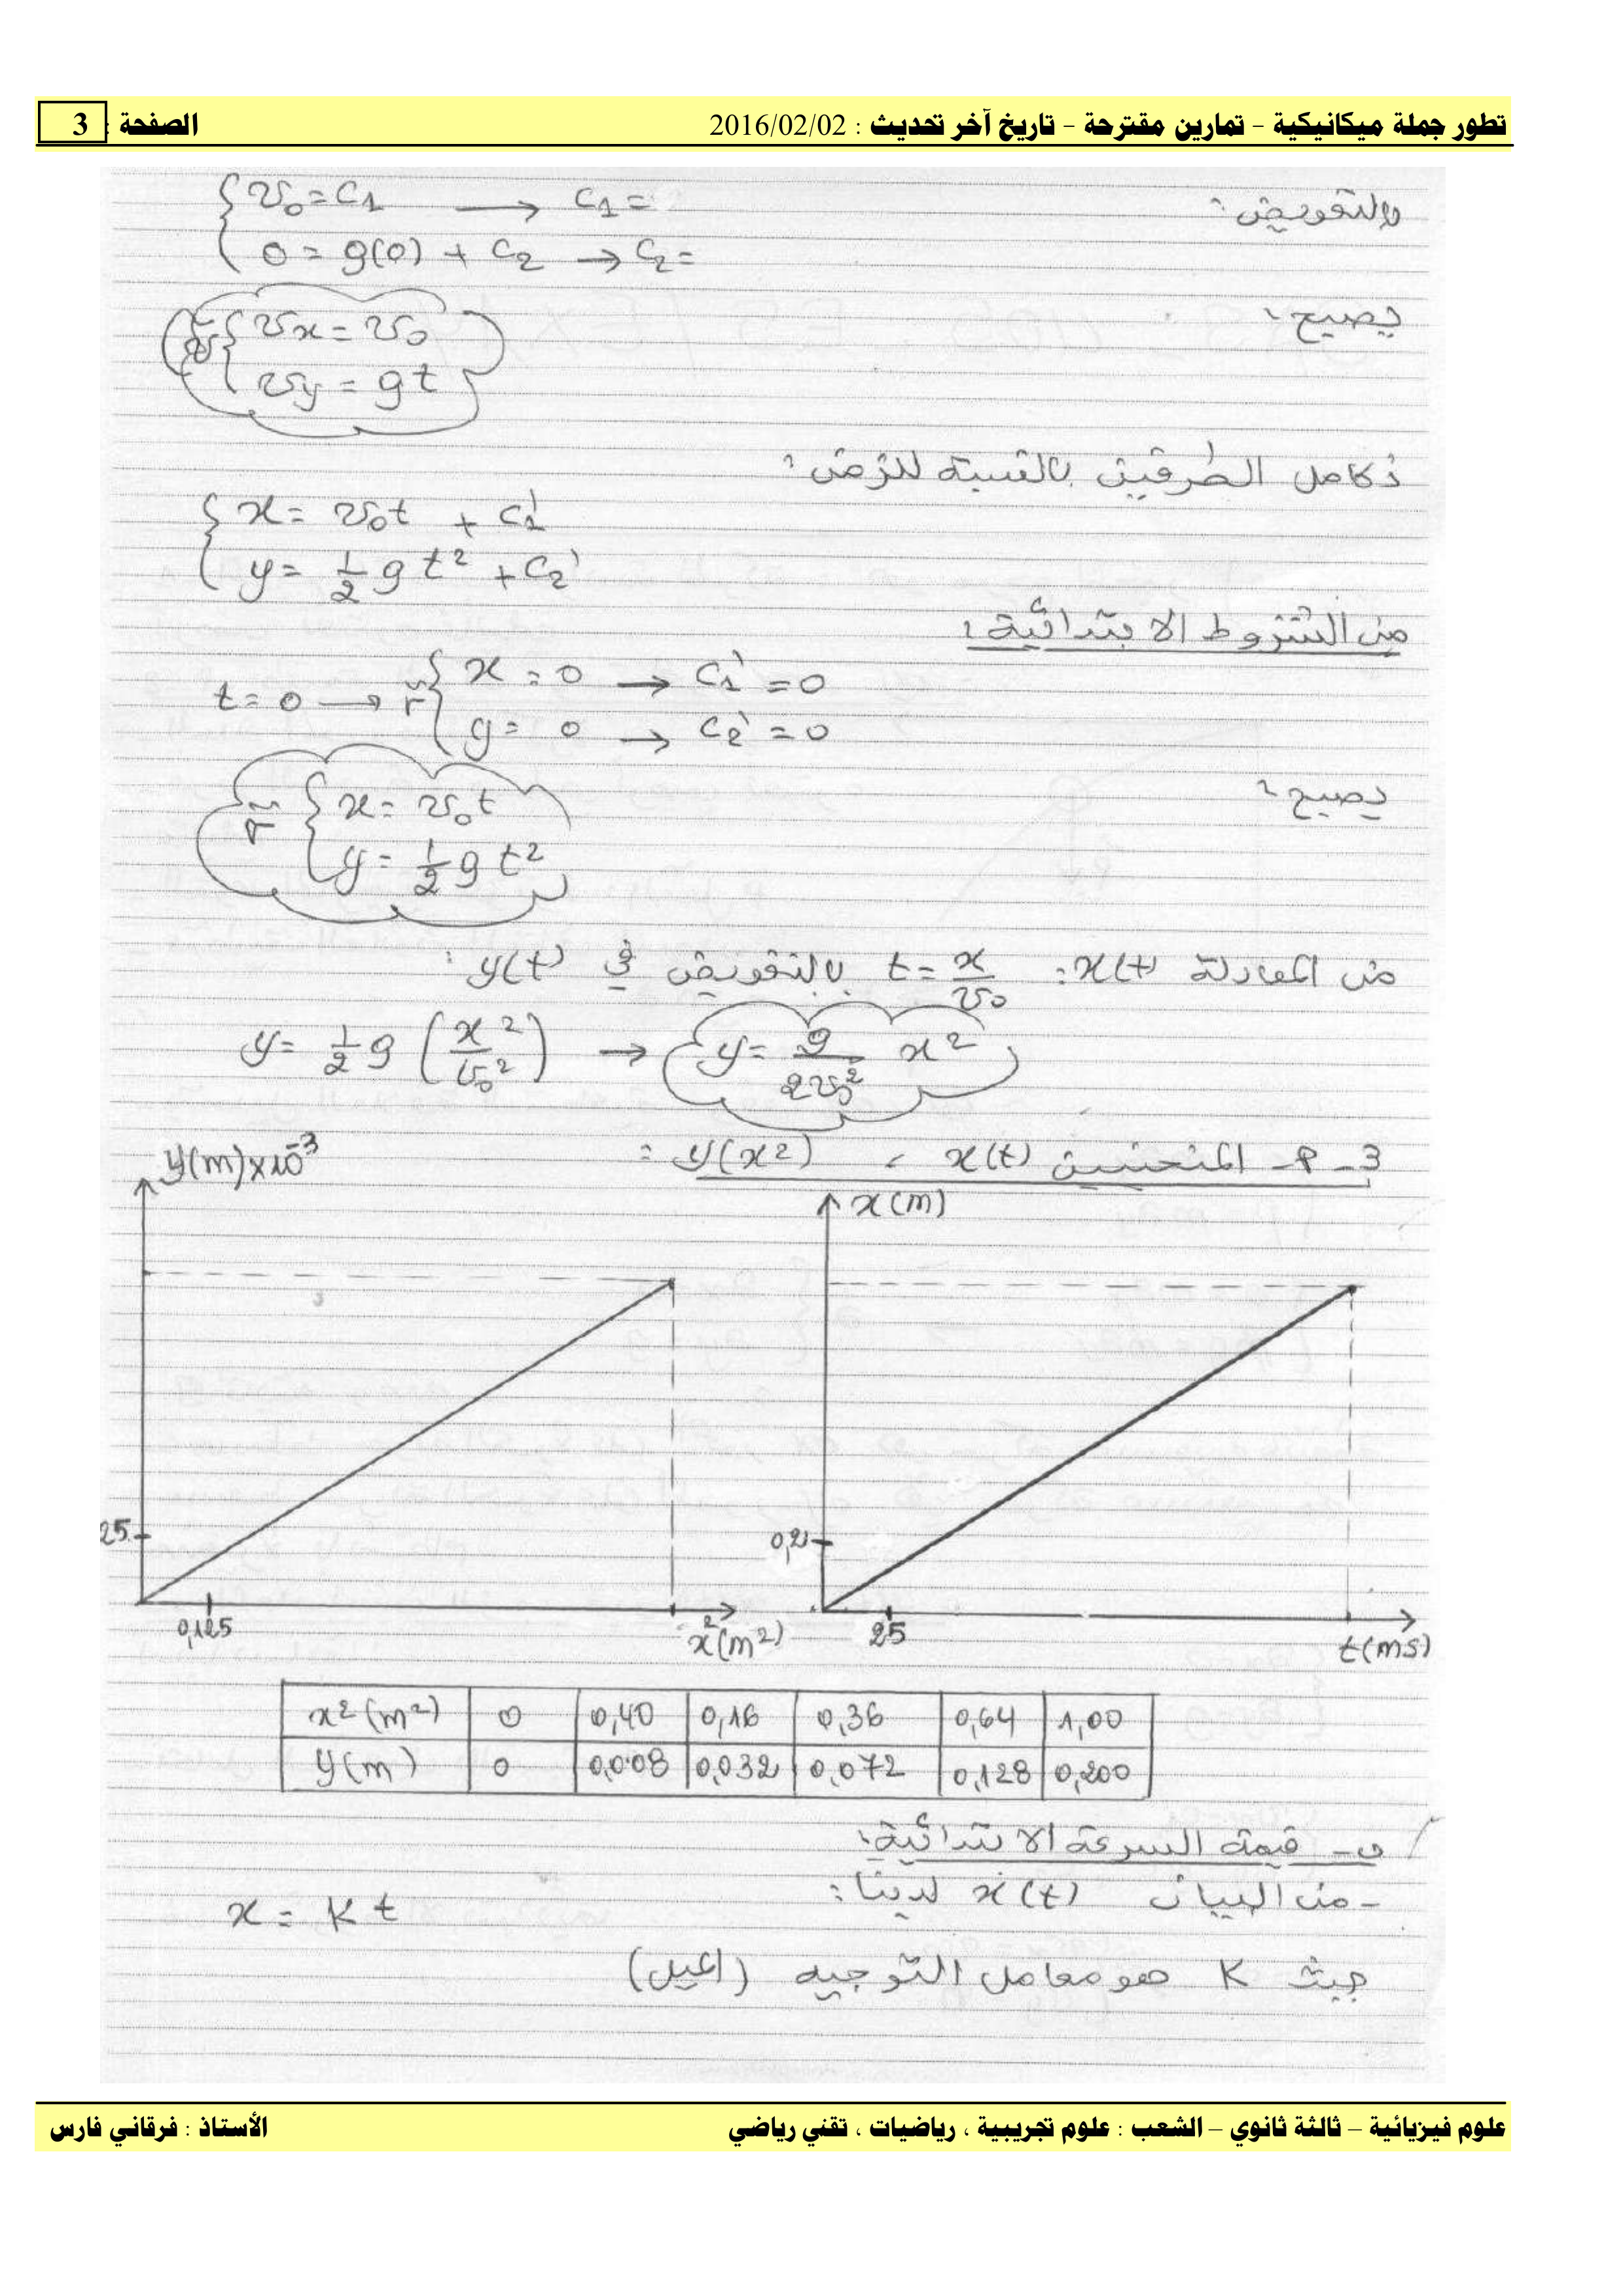 تطور جملة ميكانيكية - تمارين مقترحة - تاريخ آخر تحديث : 2016/02/02 الصفحة : 3
وبالتعويض:
v₀ = C₁ → C₁ =
0 = g(0) + C₂ → C₂ =
يصبح:
vx = v₀
vy = gt
نكامل الطرفين بالنسبة للزمن:
x = v₀t + C₁'
y = 1/2 g t² + C₂'
من الشروط الابتدائية:
t = 0 → r { x = 0 → C₁' = 0
y = 0 → C₂' = 0
يصبح:
r { x = v₀t
y = 1/2 g t²
من المعادلة x(t): t = x/v₀ بالتعويض في y(t):
y = 1/2 g (x²/v₀²) → y = g/2v₀² x²
3-P- المنحنيين x(t) ، y(x²) :
y(m)×10⁻³
x(m)
25
0,125
x²(m²)
0,2
25
t(ms)
x²(m²) 0 0,40 0,16 0,36 0,64 1,00
y(m) 0 0,008 0,032 0,072 0,128 0,200
ب- قيمة السرعة الابتدائية:
- من البيان x(t) لدينا:
x = K t
حيث K هو معامل التوجيه (الميل)
علوم فيزيائية – ثالثة ثانوي – الشعب : علوم تجريبية ، رياضيات ، تقني رياضي الأستاذ : فرقاني فارس